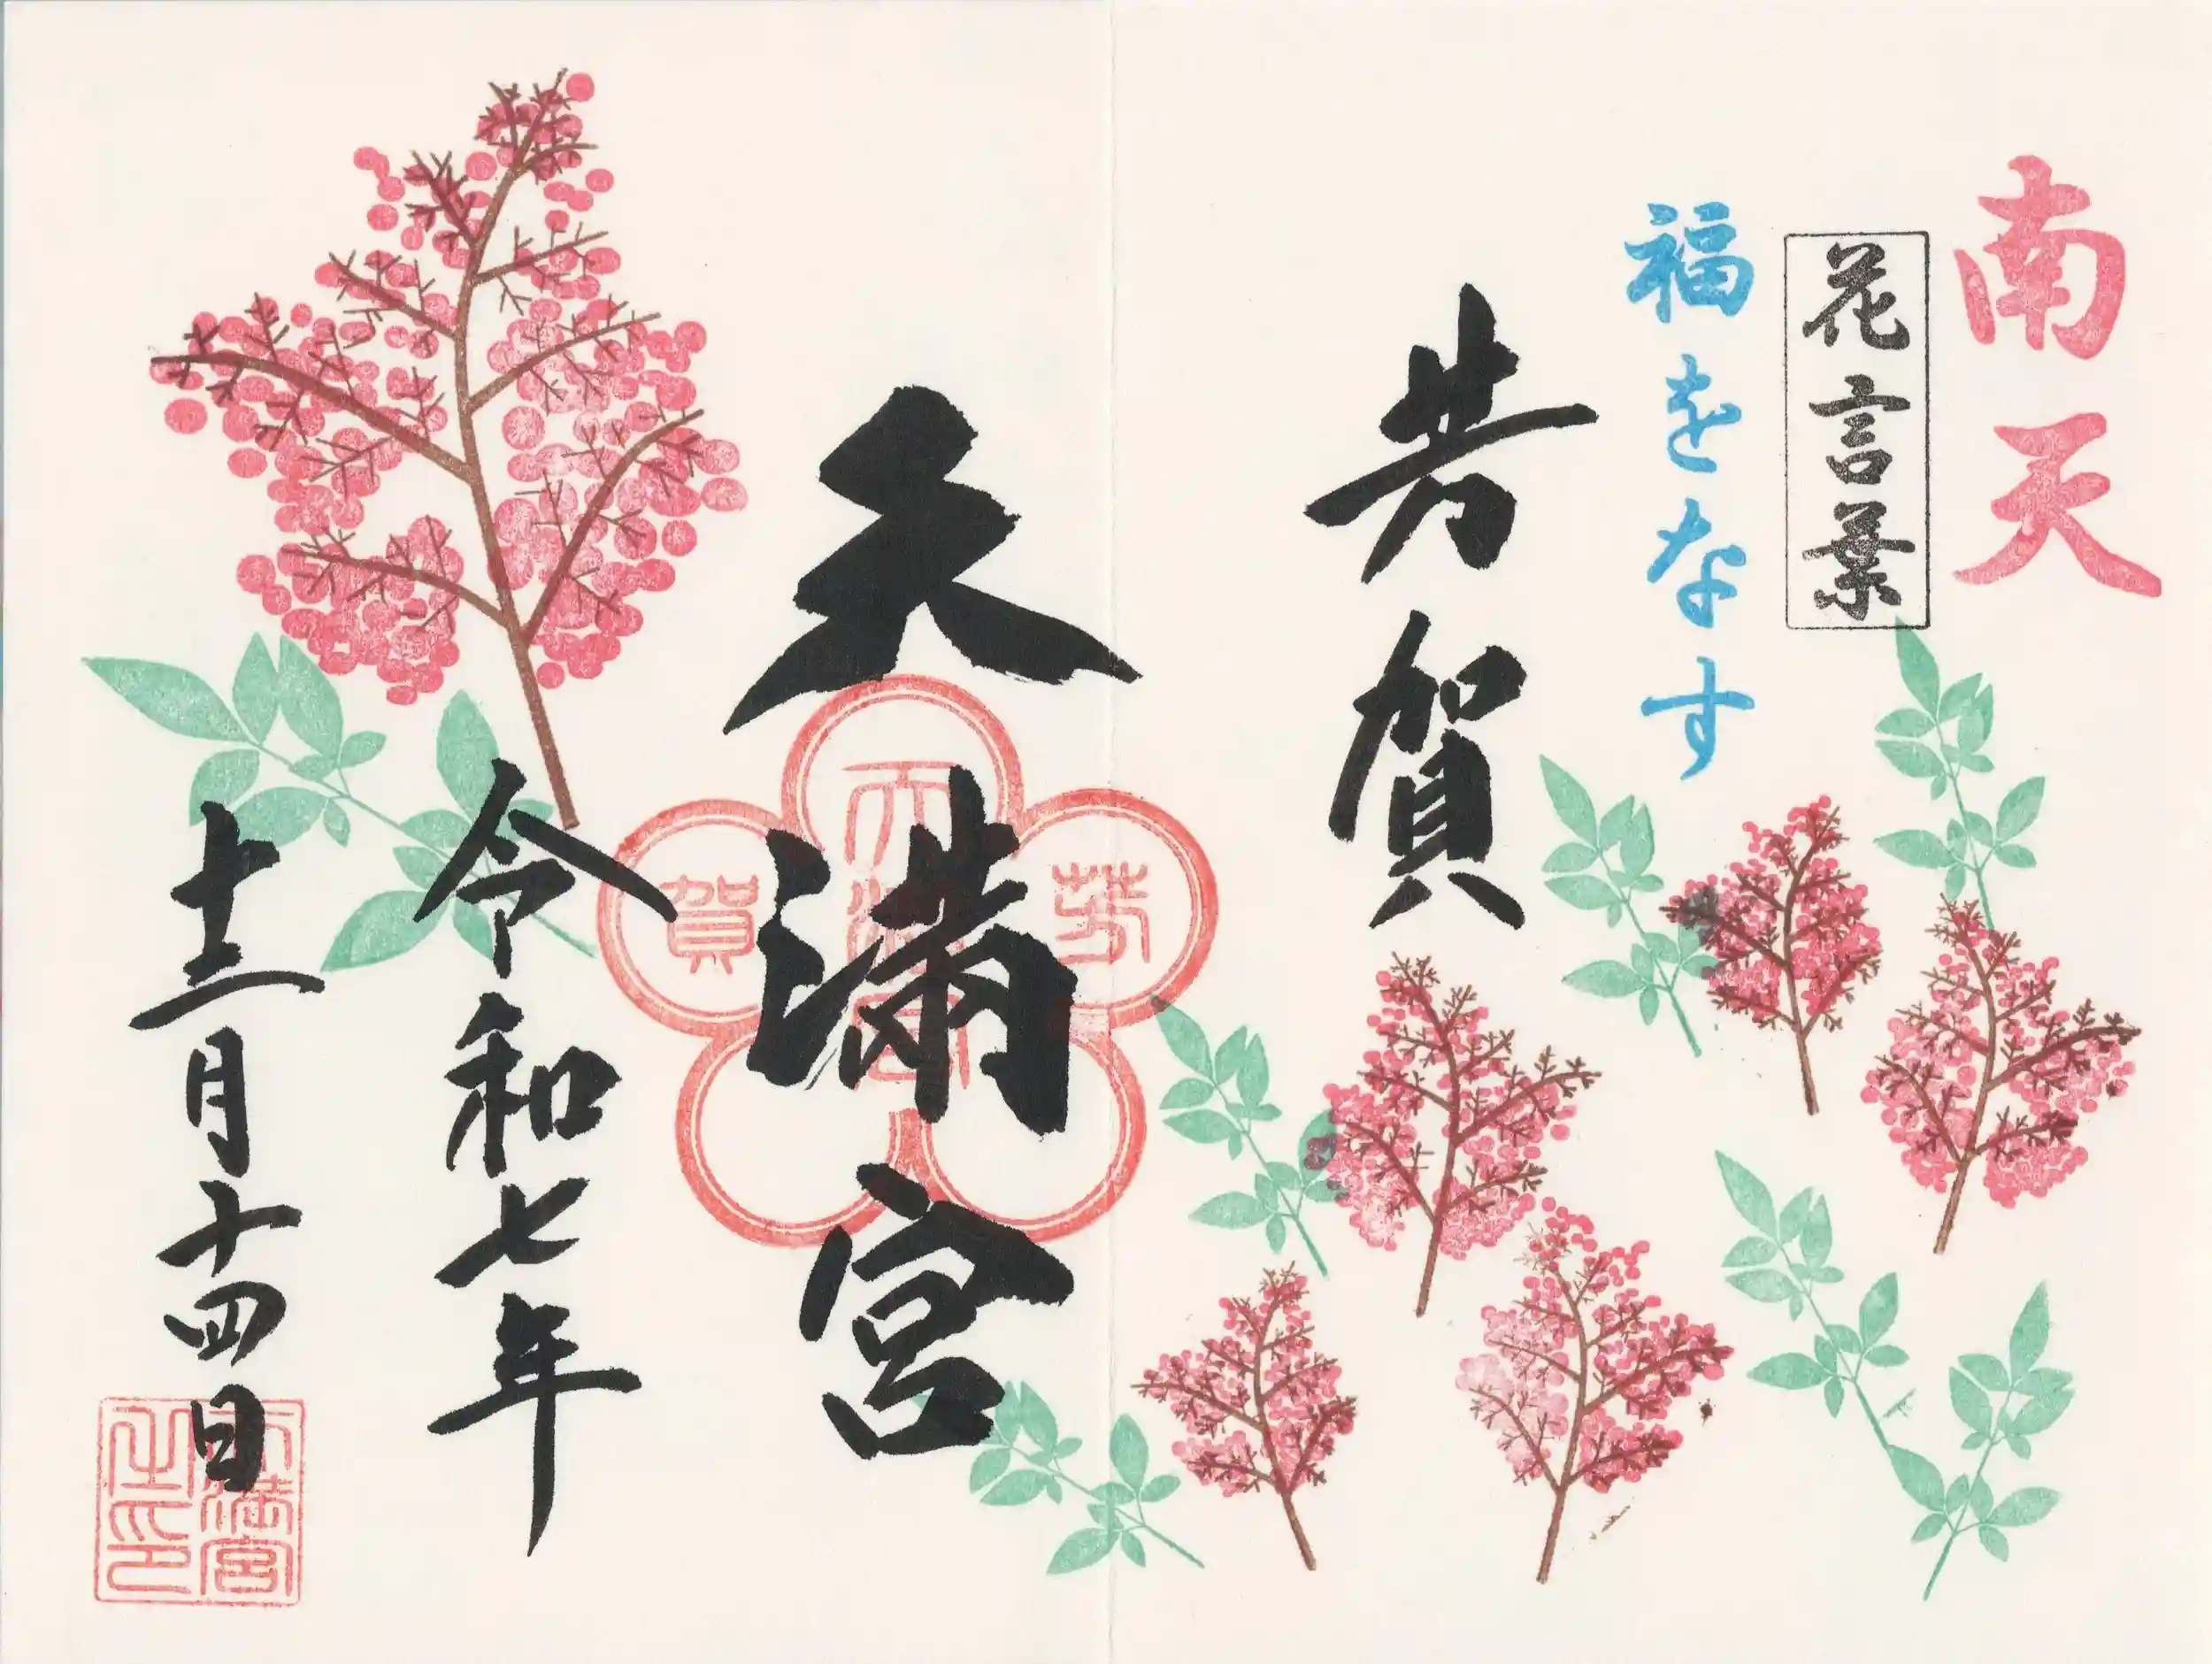 南天
花言葉
福をなす
芳賀
天満宮
芳
賀
令和七年
十二月十四日
天満宮
之印